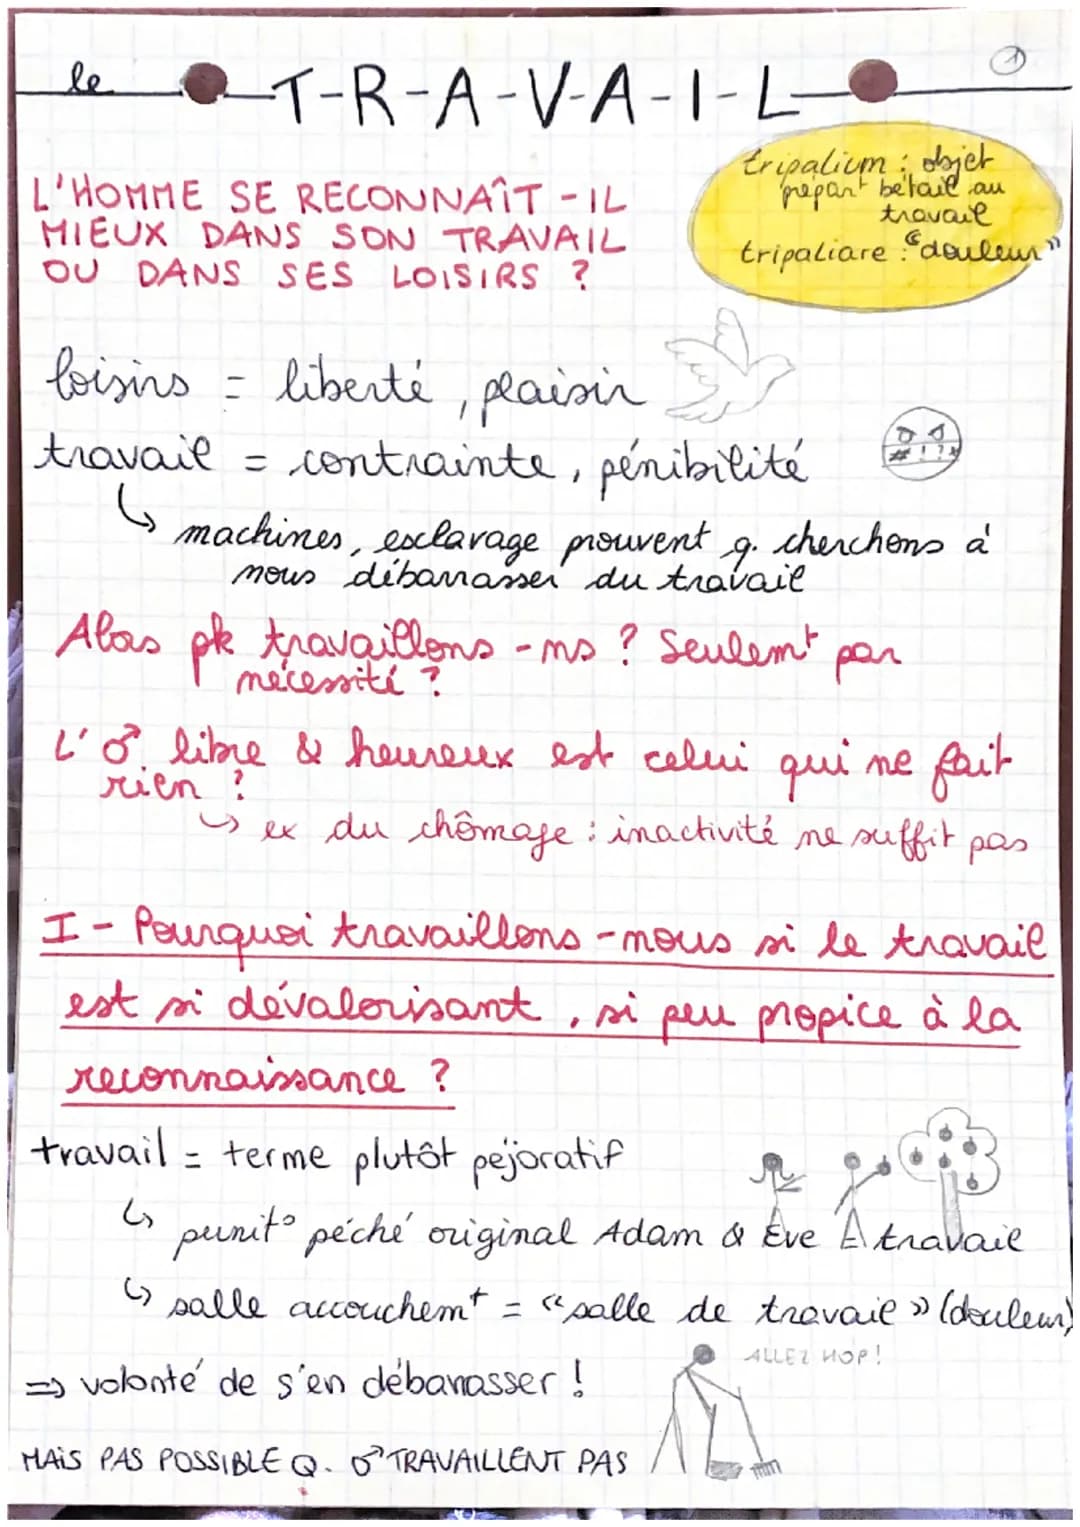 le T-R-A-V-A-I-L
1
tripalium : objet
prépant bétail au
travail
tripaliare : "douleur"
L'HOMME SE RECONNAÎT-IL
MIEUX DANS SON TRAVAIL
OU DANS SES LOISIRS ?
loisirs = liberté, plaisir
travail = contrainte, pénibilité
# ! ? *
↳ machines, esclavage prouvent q. cherchons à
nous débarrasser du travail
Alors pk travaillons-ns ? Seulemt par
nécessité ?
L'♂ libre & heureux est celui qui ne fait
rien ?
↳ ex du chômage : inactivité ne suffit pas
I - Pourquoi travaillons-nous si le travail
est si dévalorisant, si peu propice à la
reconnaissance ?
travail = terme plutôt péjoratif
↳ punit° péché original Adam & Eve travail
↳ salle accouchemt = «salle de travail» (douleur)
ALLEZ HOP !
=> volonté de s'en débarrasser !
MAIS PAS POSSIBLE Q. ♂ TRAVAILLENT PAS